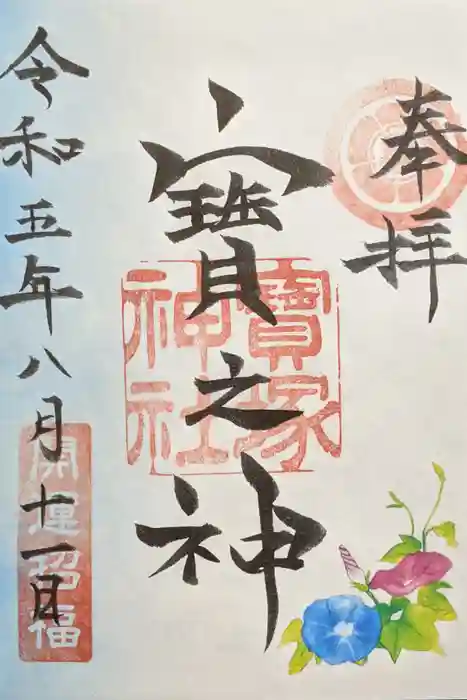 奉拝
寶之神
寶塚
神社
令和五年八月十一日
開運招福